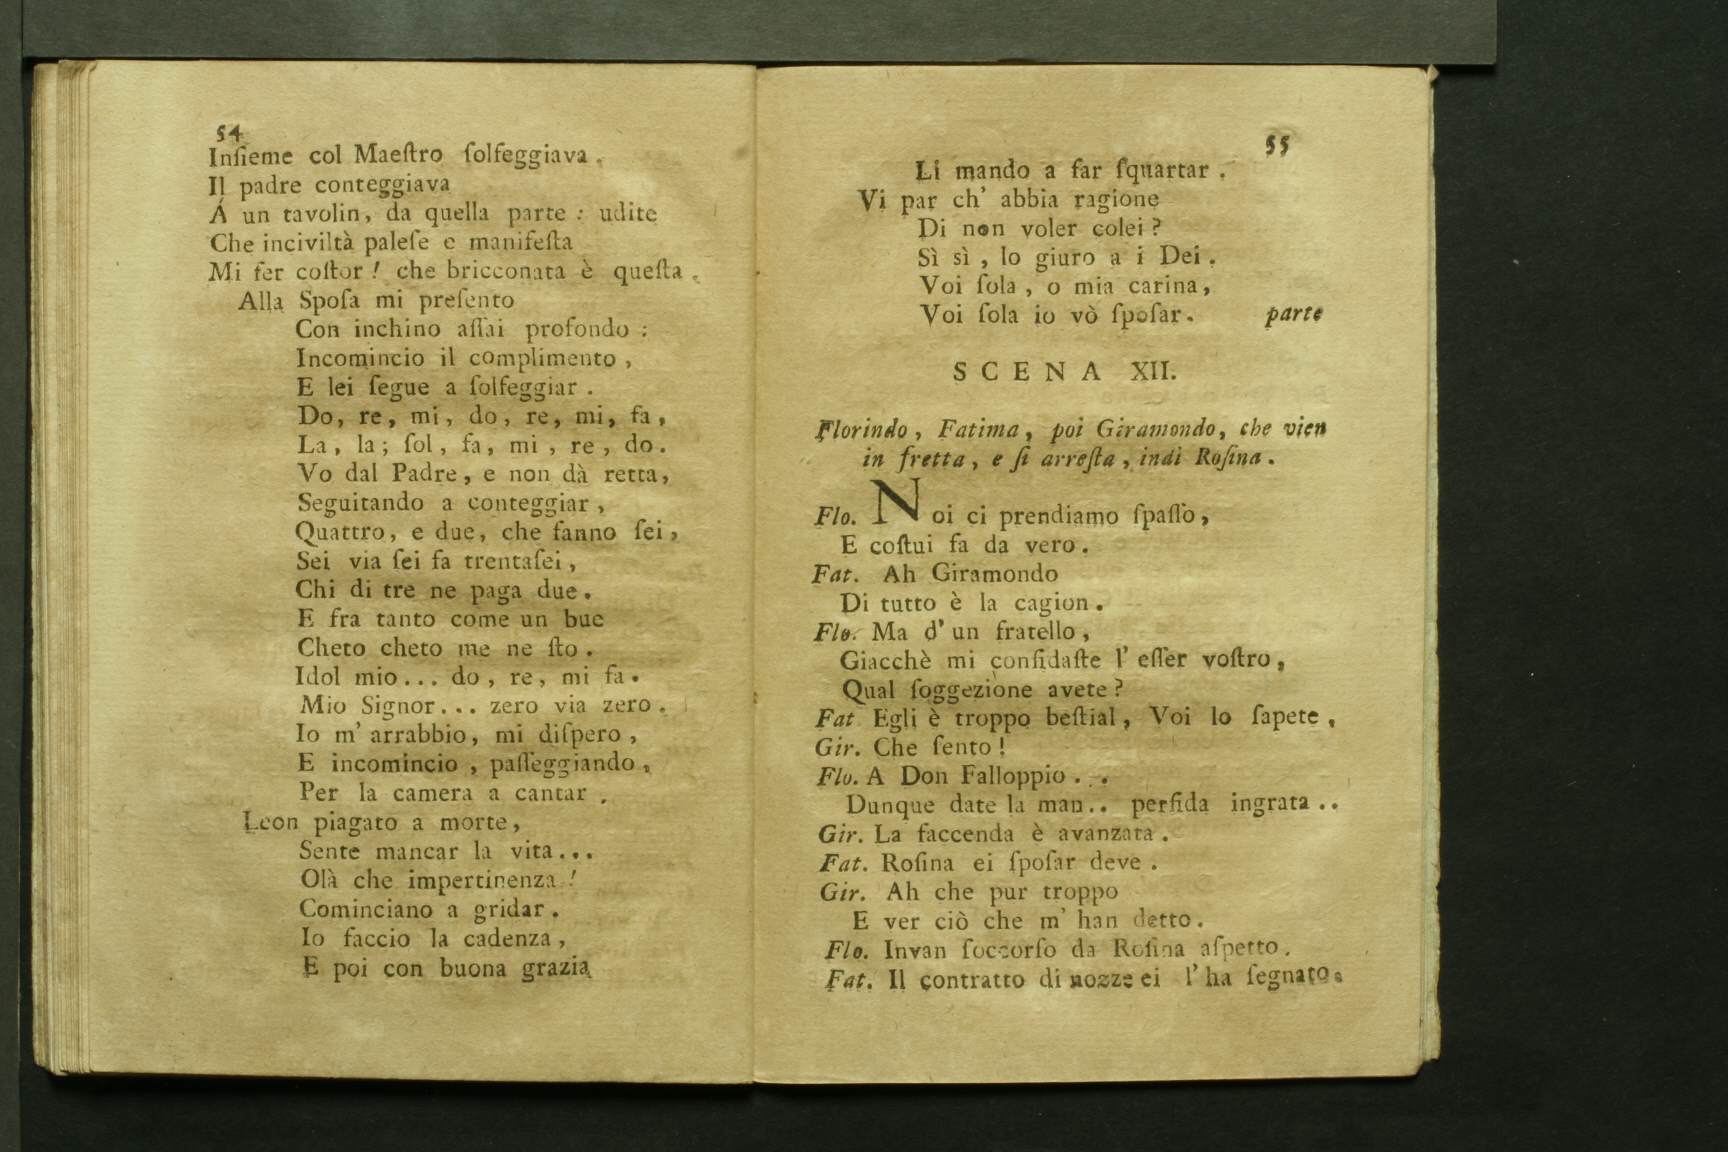 54
Inſieme col Maeſtro ſolfeggiava.
Il padre conteggiava
A un tavolin, da quella parte: udite
Che inciviltà paleſe e manifeſta
Mi fer coſtor! che bricconata è queſta.
Alla Spoſa mi preſento
Con inchino aſſai profondo:
Incomincio il complimento,
E lei ſegue a ſolfeggiar.
Do, re, mi, do, re, mi, fa,
La, la; ſol, fa, mi, re, do.
Vo dal Padre, e non dà retta,
Seguitando a conteggiar,
Quattro, e due, che fanno ſei,
Sei via ſei fa trentaſei,
Chi di tre ne paga due.
E fra tanto come un bue
Cheto cheto me ne ſto.
Idol mio... do, re, mi fa.
Mio Signor... zero via zero.
Io m' arrabbio, mi diſpero,
E incomincio, paſſeggiando,
Per la camera a cantar.
Leon piagato a morte,
Sente mancar la vita...
Olà che impertinenza!
Cominciano a gridar.
Io faccio la cadenza,
E poi con buona grazia
55
Li mando a far ſquartar.
Vi par ch' abbia ragione
Di non voler colei?
Sì sì, lo giuro a i Dei.
Voi ſola, o mia carina,
Voi ſola io vò ſpoſar. parte
SCENA XII.
Florindo, Fatima, poi Giramondo, che vien
in fretta, e ſi arreſta, indi Roſina.
Flo. Noi ci prendiamo ſpaſſo,
E coſtui fa da vero.
Fat. Ah Giramondo
Di tutto è la cagion.
Flo. Ma d' un fratello,
Giacchè mi confidaſte l' eſſer voſtro,
Qual ſoggezione avete?
Fat Egli è troppo beſtial, Voi lo ſapete,
Gir. Che ſento!
Flo. A Don Falloppio...
Dunque date la man.. perfida ingrata..
Gir. La faccenda è avanzata.
Fat. Roſina ei ſpoſar deve.
Gir. Ah che pur troppo
E ver ciò che m' han detto.
Flo. Invan ſoccorſo da Roſina aſpetto.
Fat. Il contratto di nozze ei l' ha ſegnato.